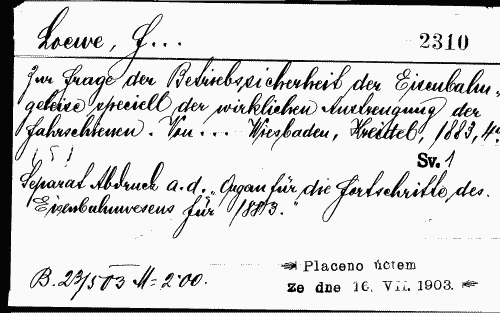 Loewe, F...
2310
Zur Frage der Betriebssicherheit der Eisenbahn-
geleise speciell der wirklichen Anstrengung der
Fahrschienen. Von ... Wiesbaden, Kreidel, 1883, 4°.
Sv. 1
Separat Abdruck a. d. „Organ für die Fortschritte des
Eisenbahnwesens für 1883."
B. 23/5 03 M= 2·00.
Placeno účtem
Ze dne 16. VII. 1903.